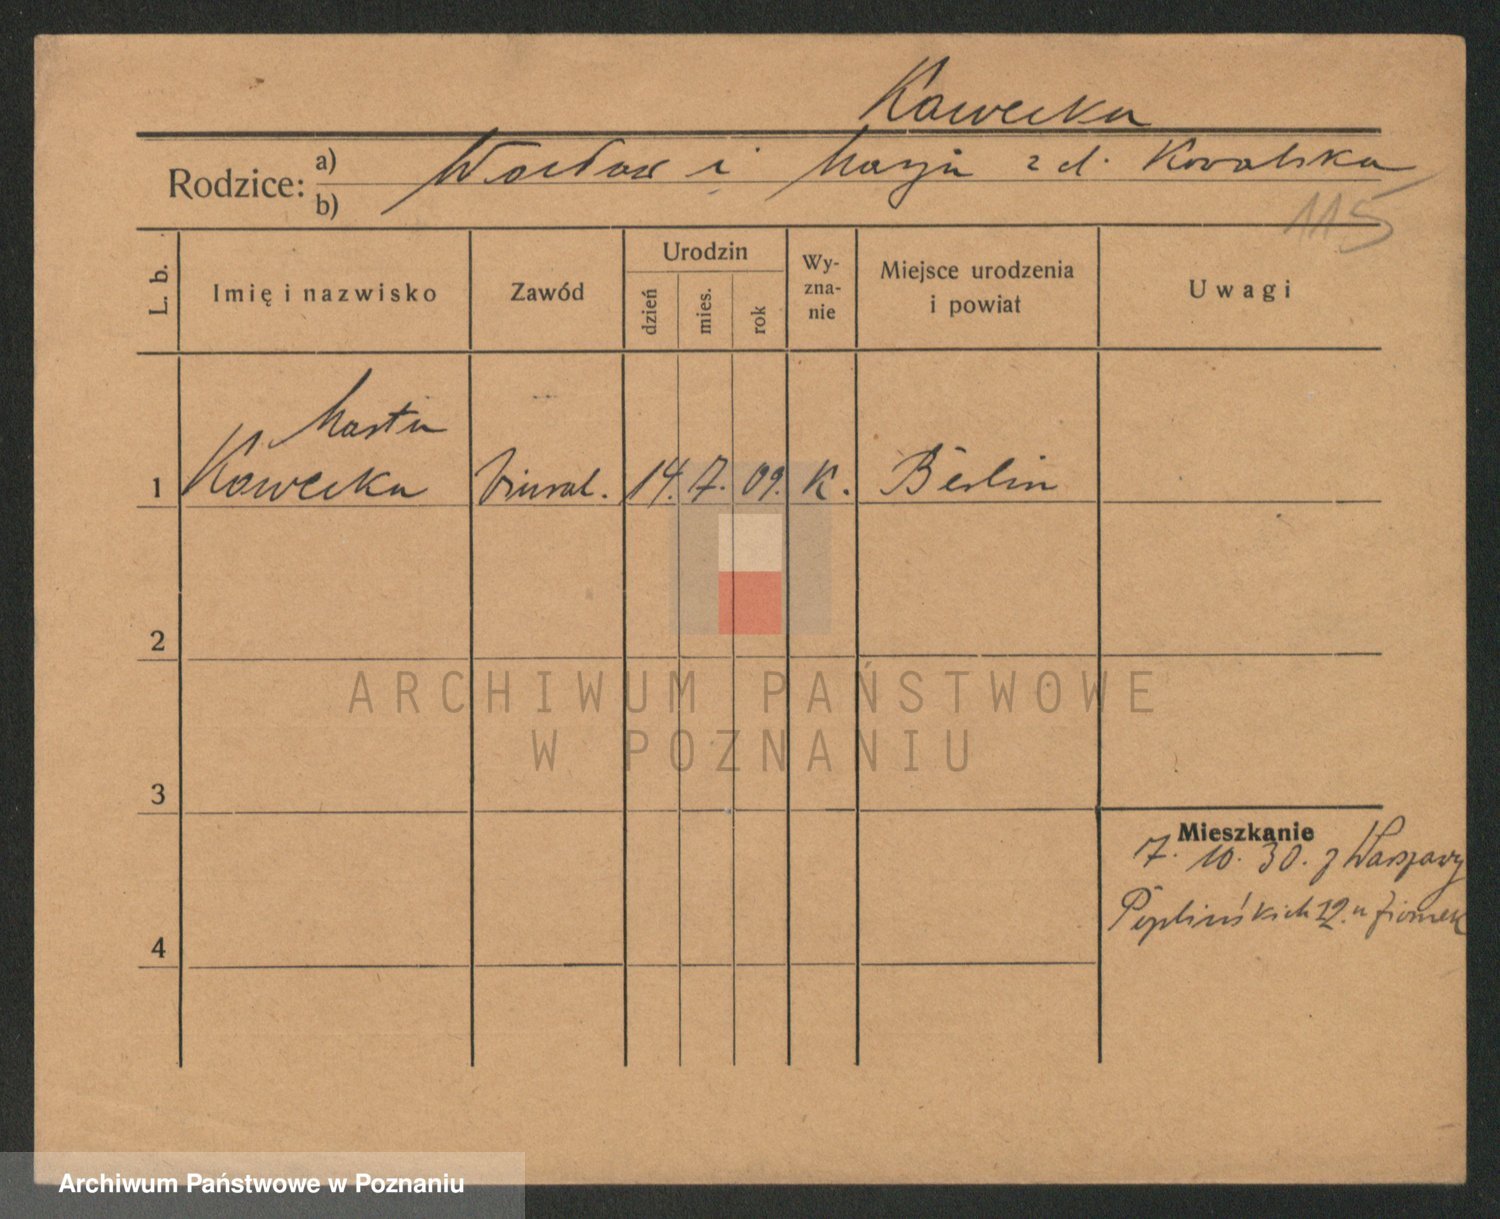 Kawecka
Rodzice: a) Wacław i Maryja z d. Kowalska
b)
115
L. b. Imię i nazwisko Zawód Urodzin dzień mies. rok Wy-zna-nie Miejsce urodzenia i powiat Uwagi
Marta
1 Kawecka biural. 14. 7. 09. K. Berlin
2
3
Mieszkanie
7. 10. 30. z Warszawy
Poplińskich 12. u
4
ARCHIWUM PAŃSTWOWE
W POZNANIU
Archiwum Państwowe w Poznaniu